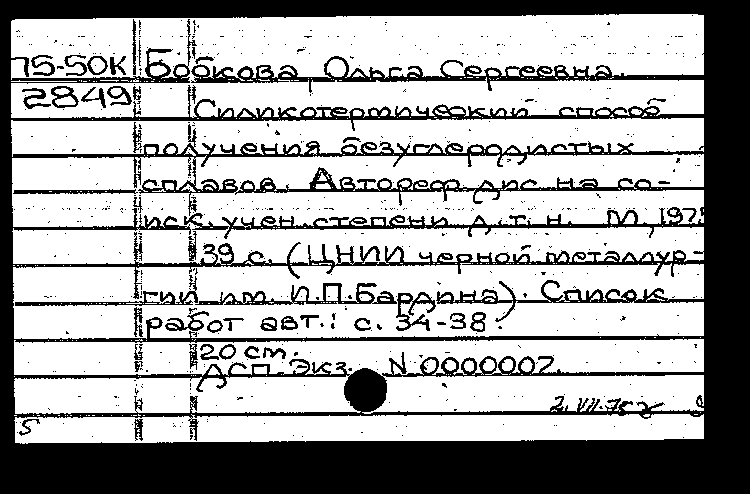 75-50К Бобкова Ольга Сергеевна.
2849 Силикотермический способ
получения безуглеродистых
сплавов. Автореф дис на со-
иск. учен. степени д. т. н. М., 1975
39 с. (ЦНИИ черной металлур-
гии им. И.П.Бардина). Список
работ авт.: с. 34-38.
20 см.
ДСП. Экз. N 0000007.
2.VII.75г
5